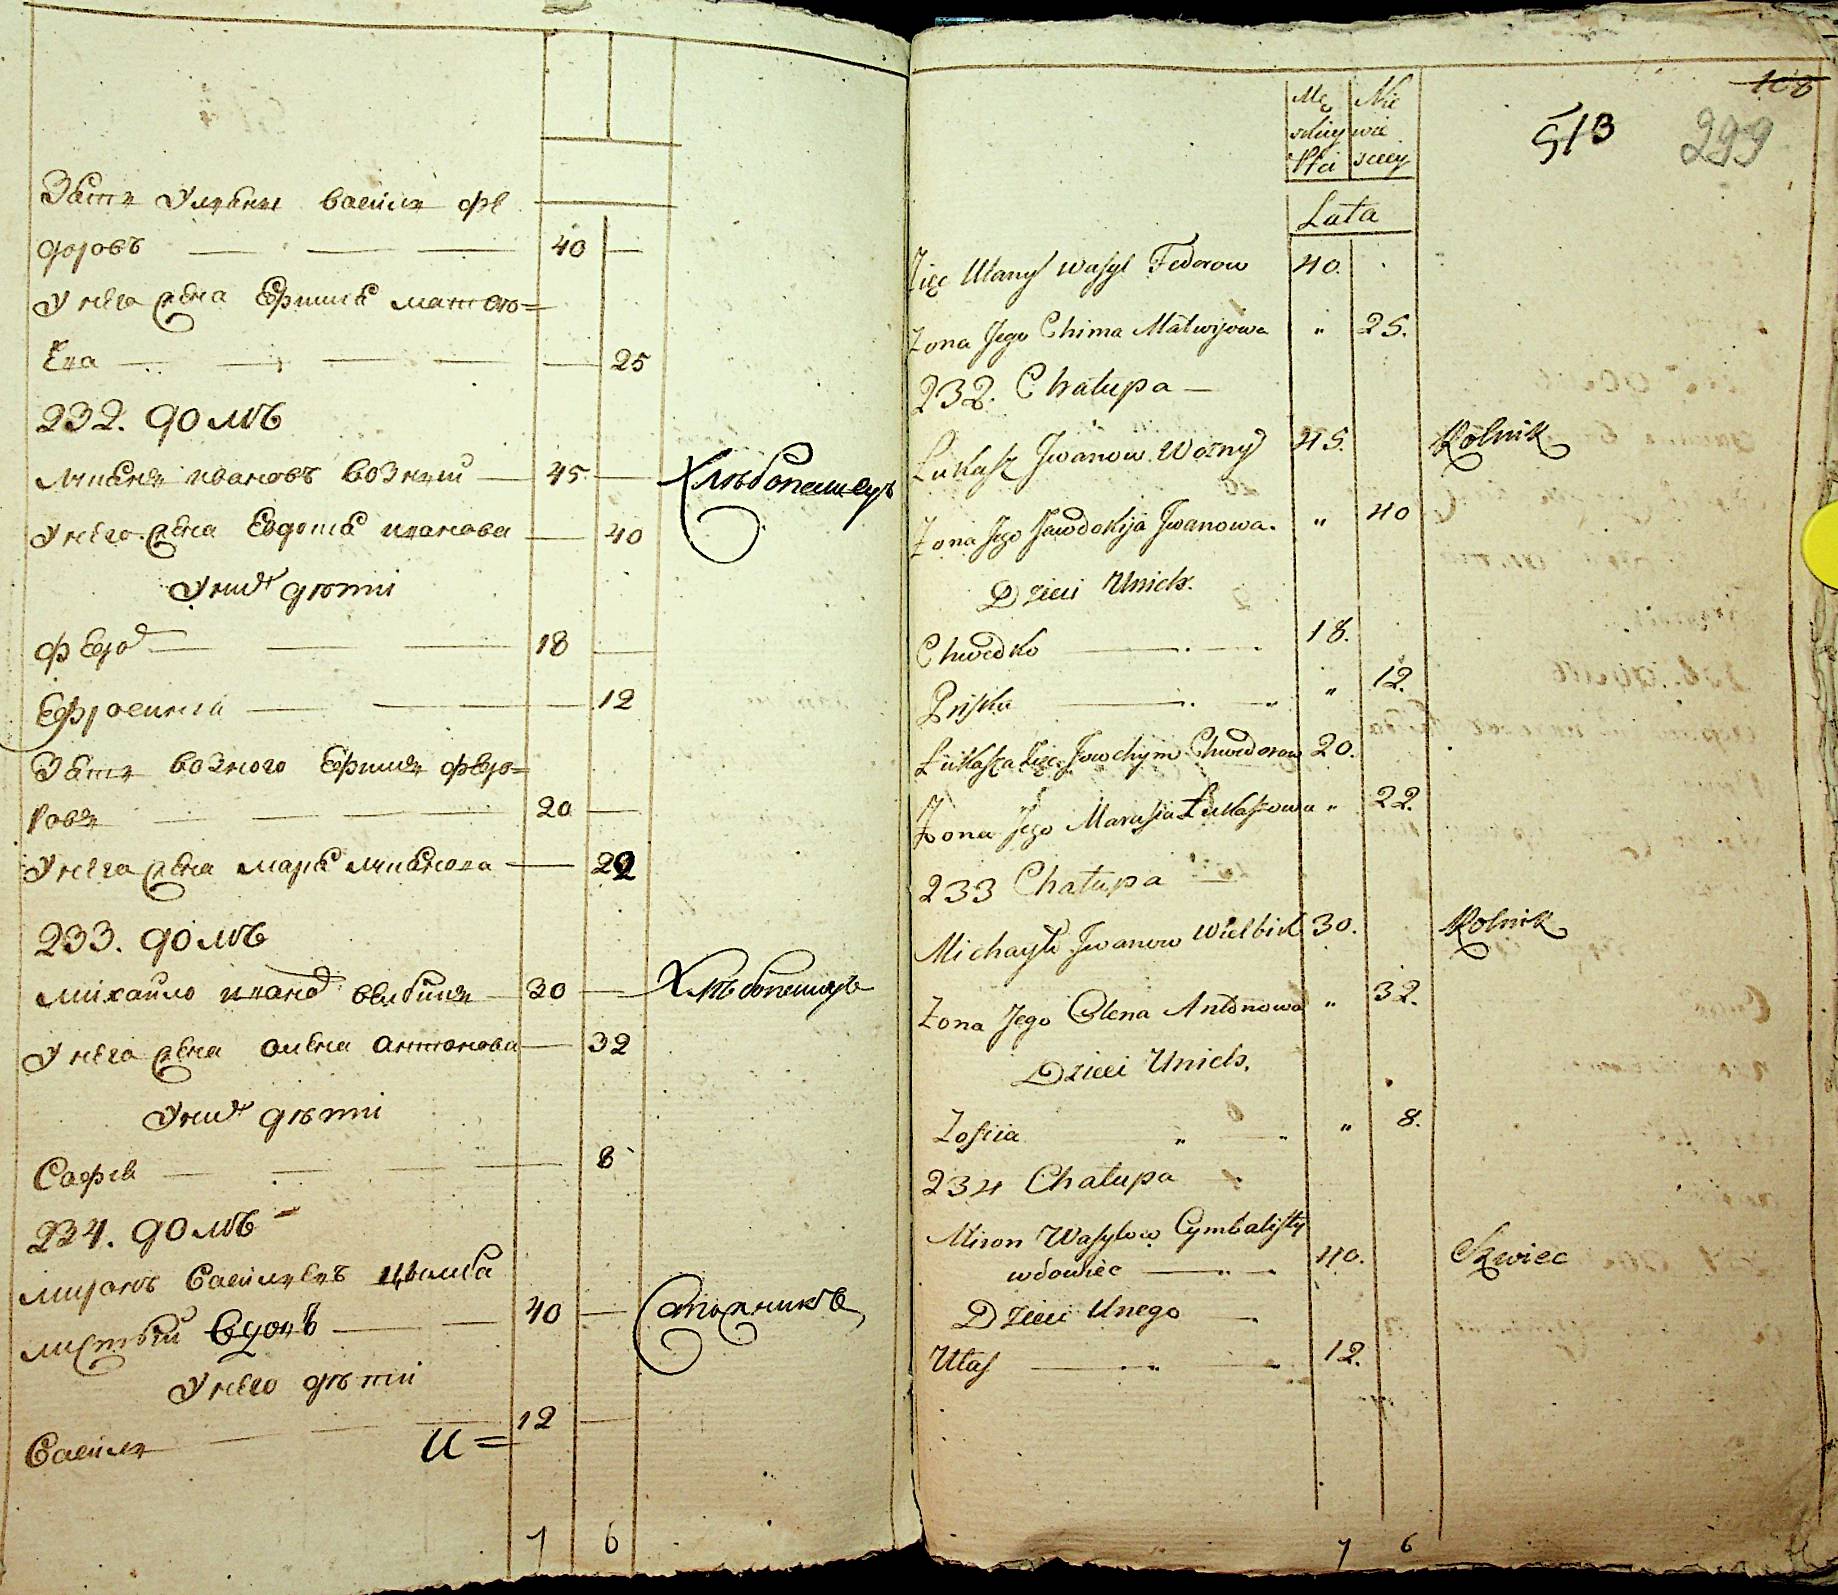 Зять Уляны василь фе
доровъ 40
У него жена Ефимья матвѣ=
ева 25
232. домъ
Лукьянъ ивановъ возный 45 Хлѣбопашецъ
У него жена Евдотья иванова 40
У них дѣти
федор 18
Ефросиния 12
Зять возного Ефимъ федо=
ровъ 20
У него жена марья лукьянова 22
233. домъ
михайло иванов велбицкий 30 Хлѣбопашецъ
У него жена олена антонова 32
У них дѣти
Софья 8
234. домъ
миронъ Васильевъ цымба
листый вдовъ 40 Сапожникъ
У него дѣти
Василь 12
И=
7 6
Mę Nie
skiey wie
Płci sciey
108
513
299
Lata
Zięc Ulany Wasyl Fedorow 40.
Zona Jego Chima Matwijowa " 25.
232. Chałupa
Łukasz Jwanow Wozny 45. Rolnik
Zona Jego Jawdokija Jwanowa. " 40
Dzieci Unich.
Chwedko 18.
Pryska " 12.
Łukasza Zięc Jowchym Chwedorow 20.
Zona Jego Marusia Łukaszowa " 22.
233 Chałupa
Michayło Jwanow Wielbick 30. Rolnik
Zona Jego Olena Antonowa " 32.
Dzieci Unich.
Zofiia " 8.
234 Chałupa
Miron Wasylow Cymbalisty
wdowiec 40. Szwiec
Dzieci Unego
Ułas 12.
7 6